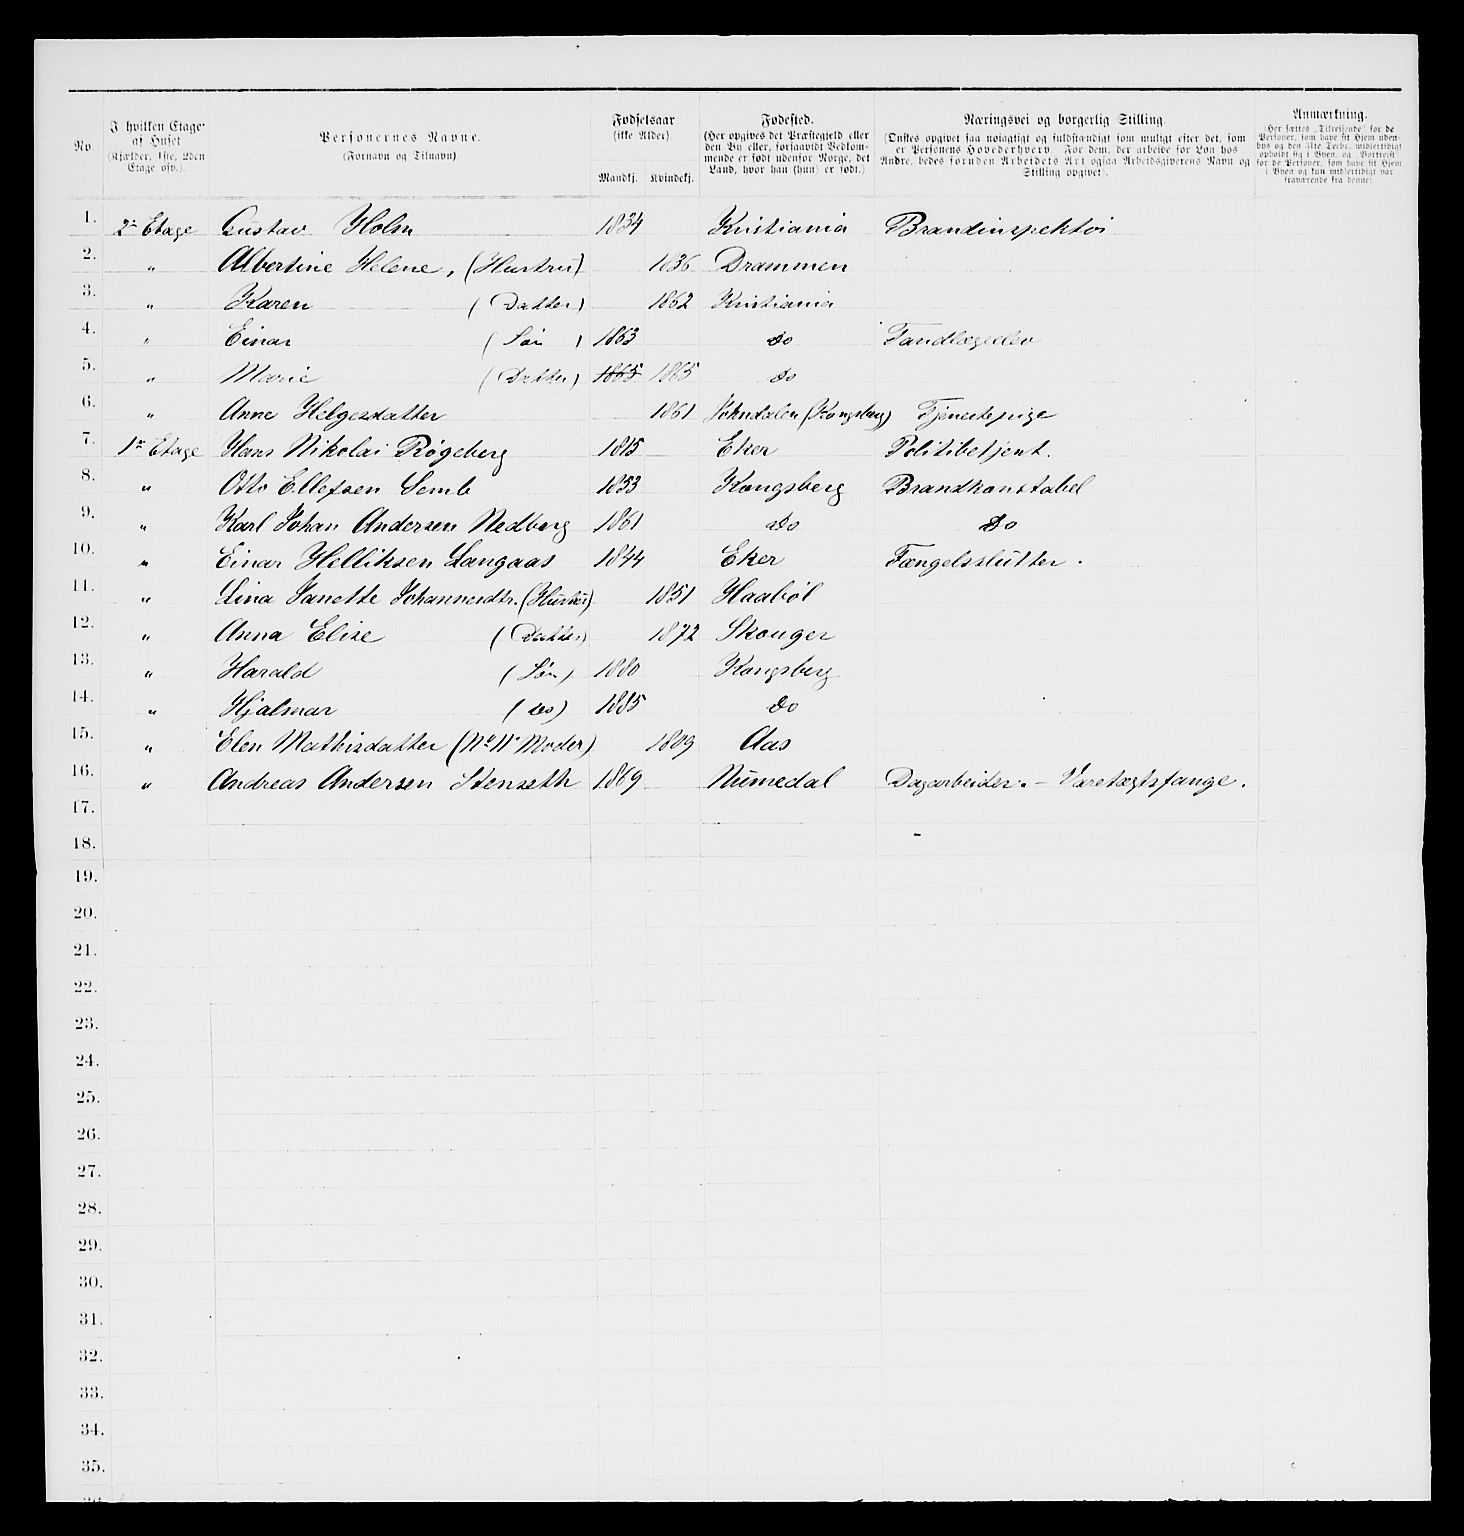 No
I hvilken Etage af Huset (Kjælder, 1ste, 2den Etage osv.).
Personernes Navne. (Fornavn og Tilnavn)
Fødselsaar (ikke Alder) Mandkj. Kvindekj.
Fødested. (Her opgives det Præstegjeld eller den By eller, forsaavidt Vedkommende er født udenfor Norge, det Land, hvor han (hun) er født.)
Næringsvei og borgerlig Stilling. (Ønskes opgivet saa nøiagtigt og fuldstændigt som muligt efter det, som er Personens Hovederhverv. For dem, der arbeide for Løn hos Andre, bedes foruden Arbeidets Art ogsaa Arbeidsgiverens Navn og Stilling opgivet).
Anmærkning. (Her sættes „Tilreisende“ for de Personer, som have sit Hjem udenbys og den 31te Decbr. midlertidigt opholdt sig i Byen, og „Bortreist“ for de Personer, som have sit Hjem i Byen og kun midlertidigt var fraværende fra denne)
1. 2n Etage Gustav Holm 1834 Kristiania Brandinspektør
2. " Albertine Helene, (Hustru) 1836 Drammen
3. " Karen (Datter) 1862 Kristiania
4. " Einar (Søn) 1863 do Tandlægeelev
5. " Marie (Datter) 1865 1865 do
6. " Anne Helgesdatter 1861 Johndalen (Kongsberg) Tjenestepige
7. 1ste Etage Hans Nikolai Røgeberg 1815 Eker Politibetjent.
8. " Otto Ellefsen Semb 1853 Kongsberg Brandkonstabel
9. " Karl Johan Andersen Nedberg 1861 do do
10. " Einar Helliksen Langaas 1844 Eker Fængelsslutter.
11. " Lina Janette Johannesdtr. (Hustru) 1851 Haabøl
12. " Anna Elise (Datter) 1872 Skouger
13. " Harald (Søn) 1880 Kongsberg
14. " Hjalmar (do) 1885 do
15. " Elen Mathisdatter (No 11s Moder) 1809 Aas
16. " Andreas Andersen Stenseth 1869 Numedal Dagarbeider. – Varetægtsfange.
17.
18.
19.
20.
21.
22.
23.
24.
25.
26.
27.
28.
29.
30.
31.
32.
33.
34.
35.